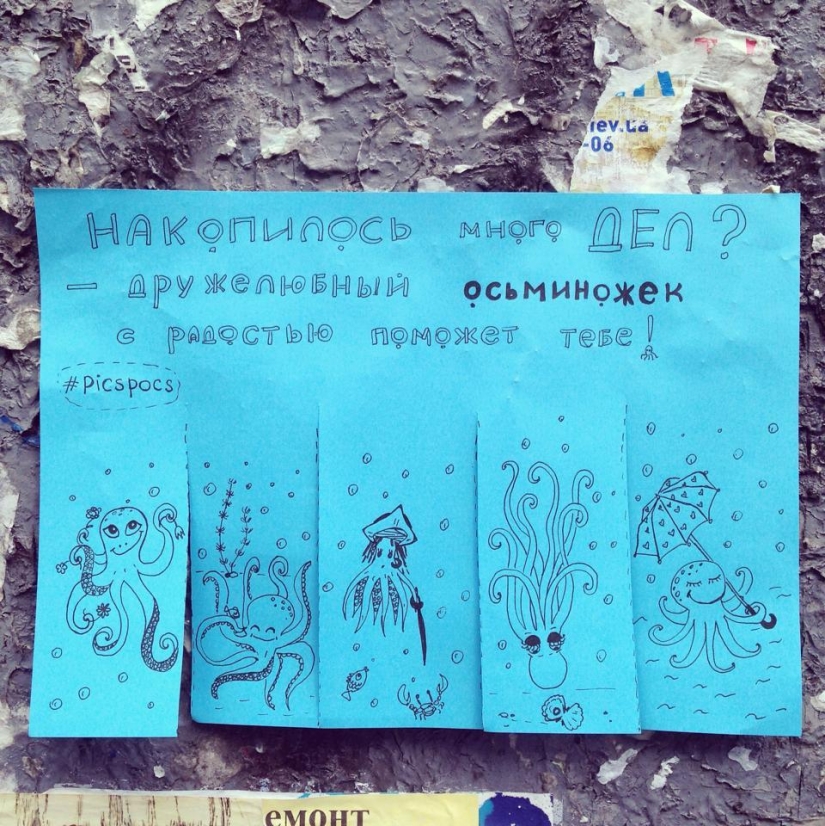 iev.ua
-06
НАКОПИЛОСЬ много ДЕЛ?
— дружелюбный осьминожек
с радостью поможет тебе!
#Picspocs
емонт